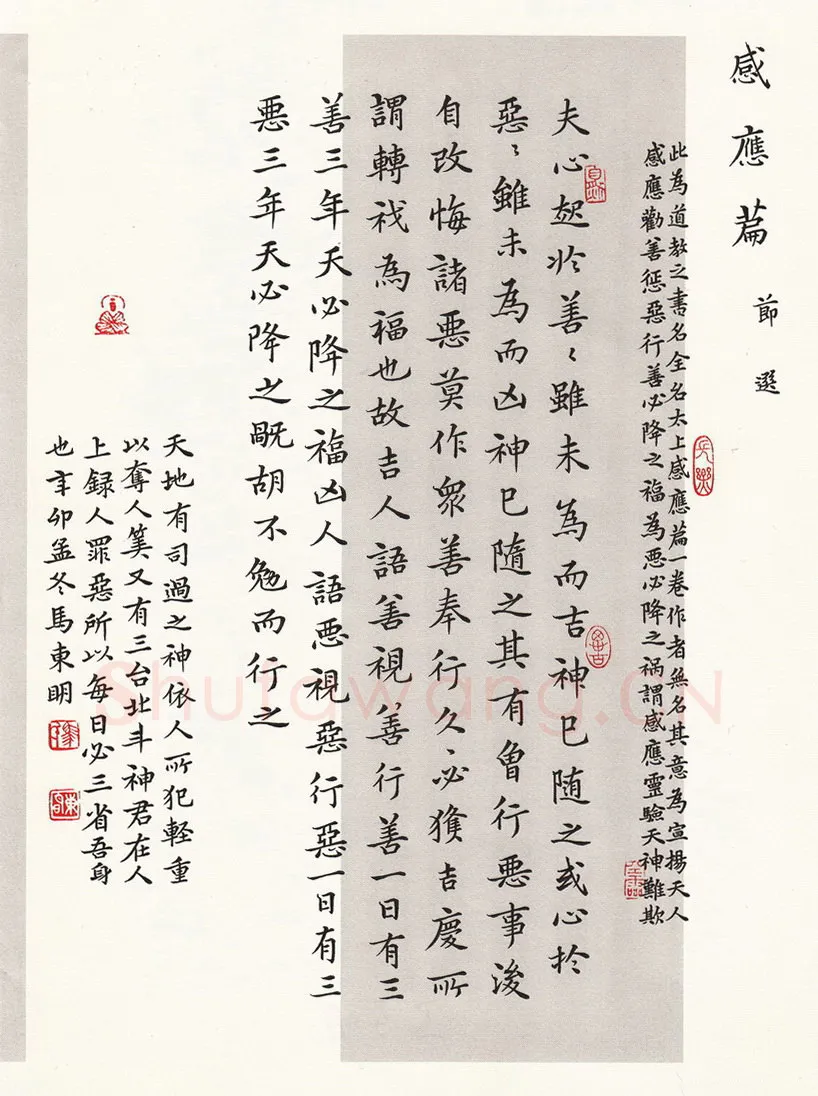 感應篇
節選
此為道教之書名全名太上感應篇一卷作者無名其意為宣揚天人
感應勸善惩惡行善必降之福為悪必降之祸謂感應靈驗天神難欺
夫心起於善〻雖未為而吉神已随之或心扵
惡〻雖未為而凶神已隨之其有曾行悪事後
自改悔諸悪莫作眾善奉行久〻必獲吉慶所
謂轉禍為福也故吉人語善視善行善一日有三
善三年天必降之福凶人語悪視惡行惡一日有三
悪三年天必降之禍胡不勉而行之
天地有司過之神依人所犯軽重
以奪人筭又有三台北斗神君在人
上録人罪惡所以每日必三省吾身
也辛卯孟冬馬東明
Shufawang.CN